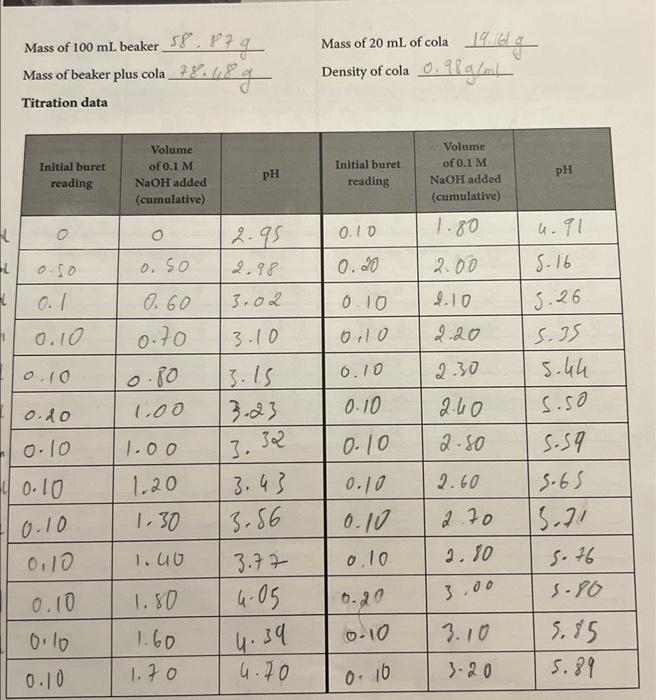 Mass of 100 mL beaker 58.87g Mass of 20 mL of cola 19.61g
Mass of beaker plus cola 78.48g Density of cola 0.98g/ml
Titration data
Initial buret reading Volume of 0.1 M NaOH added (cumulative) pH Initial buret reading Volume of 0.1 M NaOH added (cumulative) pH
0 0 2.95 0.10 1.80 4.91
0.50 0.50 2.98 0.20 2.00 5.16
0.1 0.60 3.02 0.10 2.10 5.26
0.10 0.70 3.10 0.10 2.20 5.35
0.10 0.80 3.15 0.10 2.30 5.44
0.20 1.00 3.23 0.10 2.40 5.50
0.10 1.00 3.32 0.10 2.50 5.59
0.10 1.20 3.43 0.10 2.60 5.65
0.10 1.30 3.56 0.10 2.70 5.71
0.10 1.40 3.77 0.10 2.80 5.76
0.10 1.50 4.05 0.20 3.00 5.80
0.10 1.60 4.39 0.10 3.10 5.85
0.10 1.70 4.70 0.10 3.20 5.89